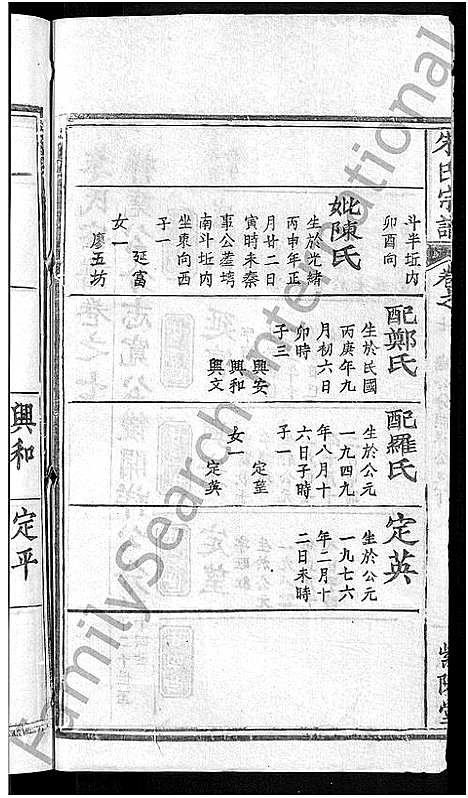 朱氏宗譜
卷之
紫陽堂
斗半坵内
卯酉向
妣陳氏
生於光緒
丙申年正
月廿二日
寅時未奈
事公塟塆
南斗坵内
坐東向西
子一
延富
女一
廖五坊
配鄭氏
生於民國
丙庚年九
月初六日
卯時
子三
興安
興和
興文
配羅氏
生於公元
一九四九
年八月十
六日子時
子一
定堃
女一
定英
定英
生於公元
一九七六
年二月十
二日未時
興和
定平
FamilySearch International